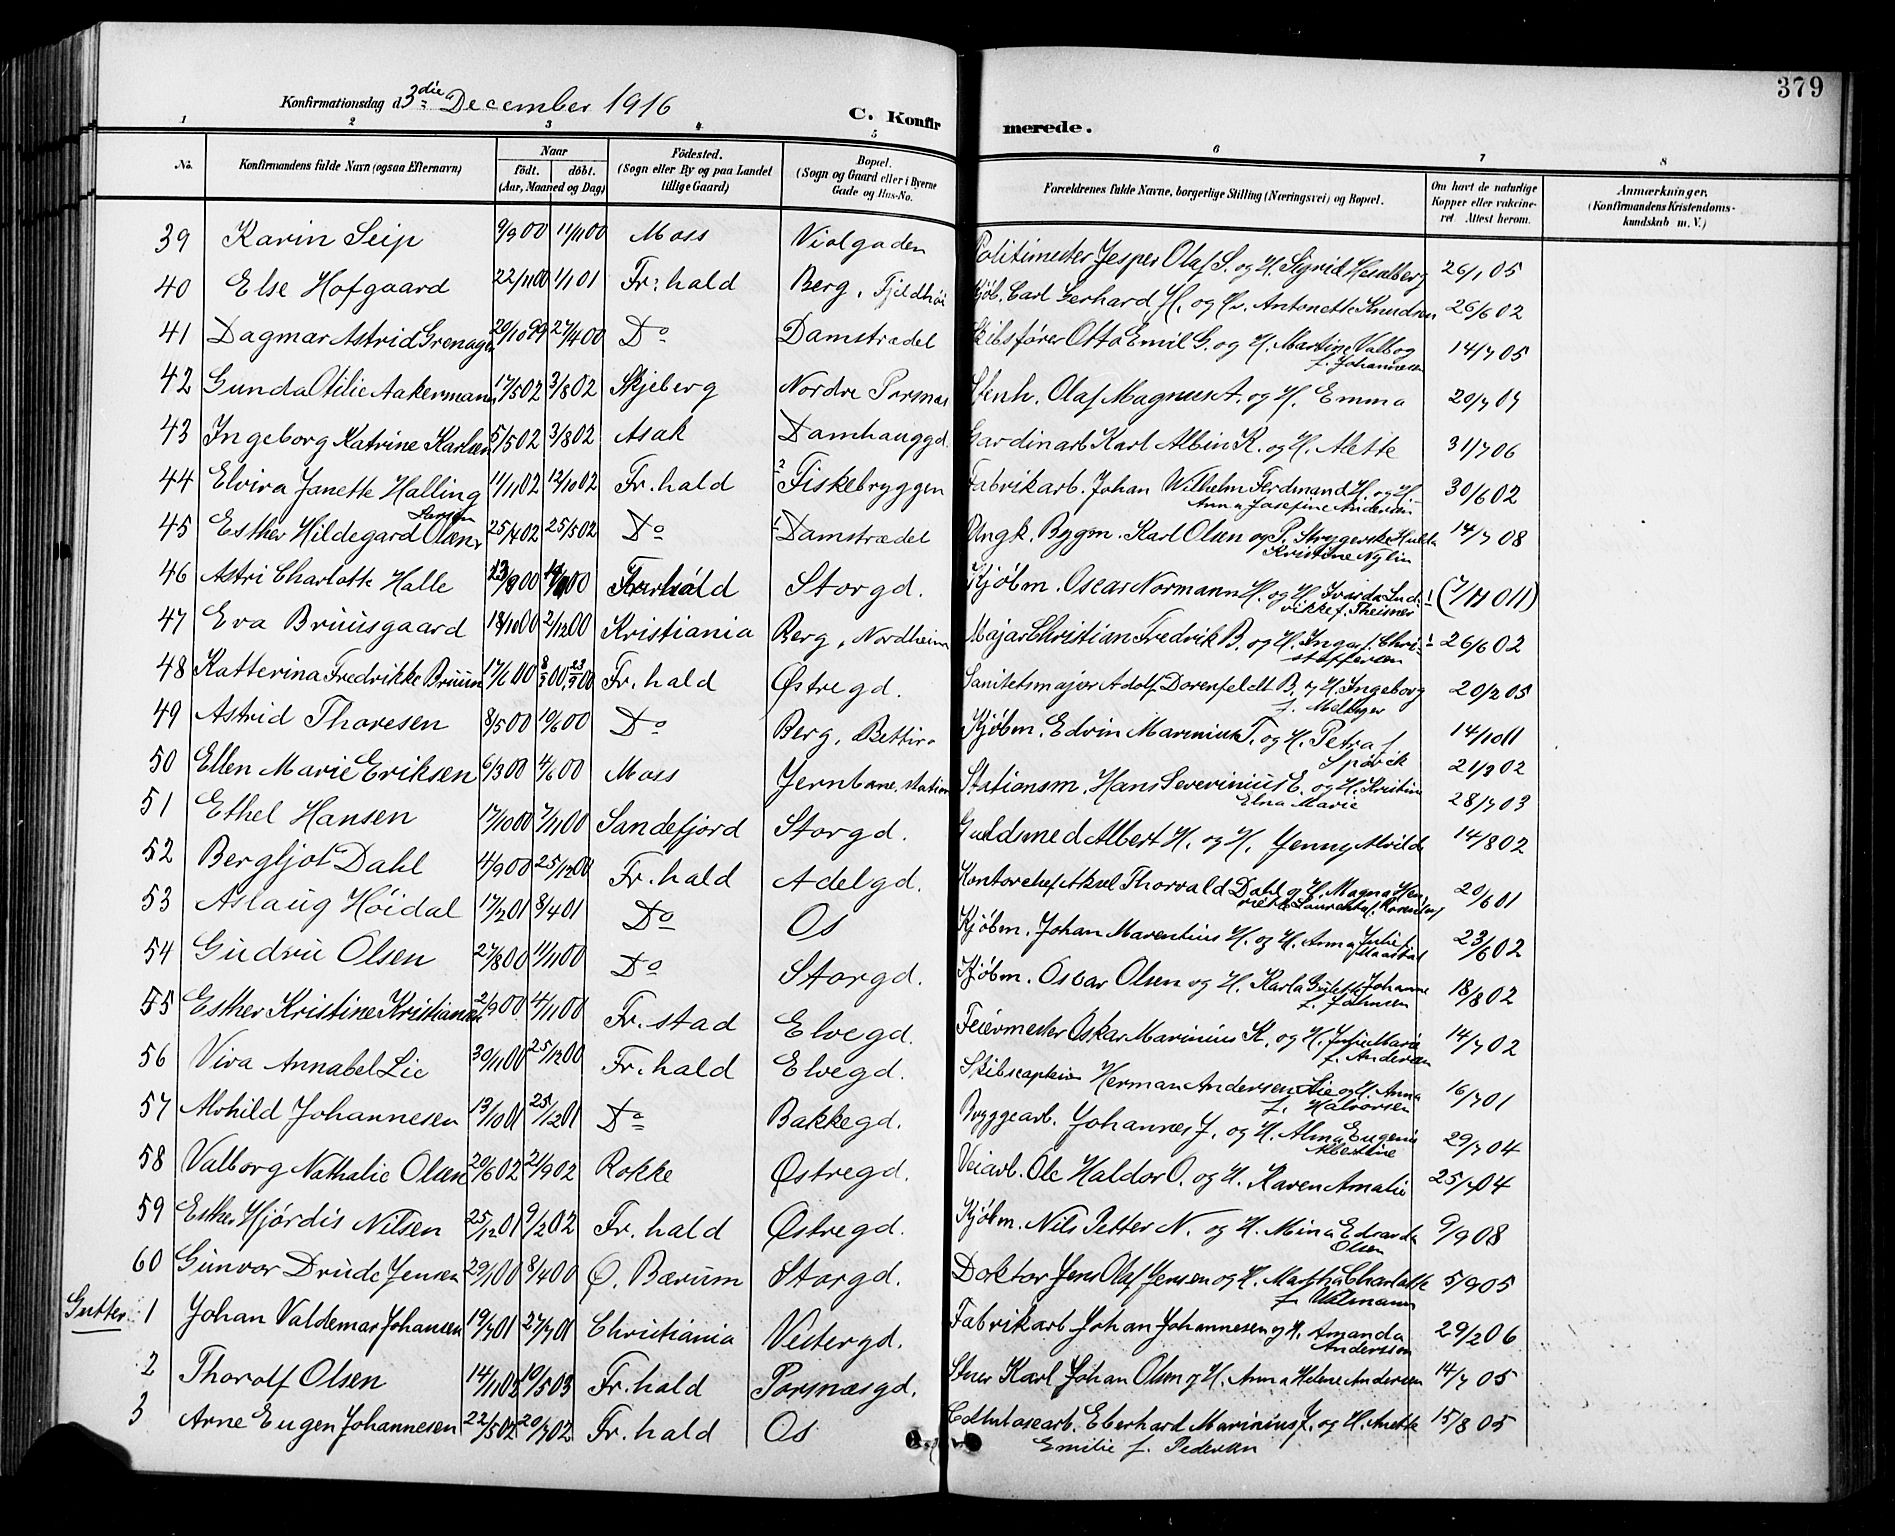 379
Konfirmationsdag d. 3die December 1916
C. Konfirmerede.
1 2 3 4 5 6 7 8
No. Konfirmandens fulde Navn (ogsaa Efternavn) Naar født. døbt. (Aar, Maaned og Dag) Födested. (Sogn eller By og paa Landet tillige Gaard) Bopæl. (Sogn og Gaard eller i Byerne Gade og Hus-No. Forældrenes fulde Navne, borgerlige Stilling (Næringsvei) og Bopæl. Om havt de naturlige Kopper eller vakcineret. Attest herom. Anmærkninger. (Konfirmandens Kristendomskundskab m. V.)
39 Karin Seip 9/9 00 11/11 00 Moss Violgaden Politimester Jesper Olaf S. og H. Sigrid Hesselberg 26/1 05
40 Else Hofgaard 22/11 00 1/1 01 Fr:hald Berg, Fjeldhöi Kjöb. Carl Gerhard H. og Antonette Knudsen 26/6 02
41 Dagmar Astrid Grenager 20/10 99 27/4 00 Do Damstrædet Skibsfører Otto Emil G. og H. Martine Valbog f. Johannesen 14/7 05
42 Gunda Otilie Aakermann 17/5 02 3/8 02 Skjeberg Nordre Porsnæs Stenh. Olaf Magnus A. og H. Emma 20/7 07
43 Ingeborg Katrine Karlsen 5/5 02 3/8 02 Asak Damhauggd. Gardinarb Karl Albin K. og H. Mette 31/7 06
44 Elvira Janette Halling 11/1 02 12/10 02 Fr.hald 2 Fiskebryggen Fabrikarb. Johan Wilhelm Ferdinand H. og H. Anna Josefine Andersen 30/6 02
45 Esther Hildegard Olsen 25/4 02 25/5 02 Do 1 Damstrædet Ungk. Bygm. Karl Olsen og P. Strygerske Hulda Kristine Nylin 14/7 08
46 Astri Charlotte Halle Storgd. Kjøbm. Oscar Normann H. og H. (7/11 011)
47 Eva Bruusgaard 18/10 00 2/12 00 Kristiania Berg, Nordheim Major Christian Fredrik B. og H. Inga f. Christoffersen 26/6 02
48 Katterina Fredrikke Bruun 17/6 00 Fr. hald Østregd. Sanitetsmajor Adolf Dorenfeldt B. og H. Ingeborg f. Meltzer 20/2 05
49 Astrid Thoresen 8/5 00 10/6 00 Do Berg, Kjøbm. Edvin Marinius T. og H. Petra f. 14/10 11
50 Ellen Marie Eriksen 6/3 00 4/6 00 Moss Jernbane, station Stationsm. Hans Severinius E. og H. Kristine Elna Marie 21/9 02
51 Ethel Hansen 17/10 00 7/11 00 Sandefjord Storgd. Guldsmed Albert H. og H. Jenny Alvilda 28/7 03
52 Bergljot Dahl 4/9 00 25/12 00 Fr. hald Adelgd. Kontorchef Aksel Thorvald Dahl og H. Magna 14/8 02
53 Aslaug Höidal 17/2 01 8/4 01 Do Os Kjøbm. Johan Marentius H. og H. Anna Julie f. 20/6 01
54 Gudru Olsen 27/8 00 11/11 00 Do Storgd. Kjøbm. Oscar Olsen og H. Karla Johanne f. Johnsen 23/6 02
55 Esther Kristine Kristiansen 2/9 00 4/11 00 Fr. stad Elvegd. Feiermester Oskar Marinius K. og H. Julie Marie f. Andersen 18/8 02
56 Viva Annabel Lie 30/11 00 25/12 00 Fr. hald Elvegd. Skibscaptein Herman Andersen Lie og H. Anna f. Halvorsen 14/7 02
57 Alvhild Johannesen 13/10 01 25/12 01 Do Bakkegd. Bryggearb. Johannes J. og H. Alma Eugenie Albertine 16/7 01
58 Valborg Nathalie Olsen 20/6 02 21/9 02 Rokke Østregd. Veiarb. Ole Haldor O. og H. Karen Amalie 29/7 04
59 Esther Hjördis Nilsen 25/12 01 9/2 02 Fr. hald Østregd. Kjøbm. Nils Petter N. og H. Mina Edvarda Olsen 25/7 04
60 Gunvor Drude Jensen 29/1 00 8/4 00 Ø. Bærum Storgd. Doktor Jens Olaf Jensen og H. Martha Charlotte f. 9/9 08
5/9 05
Gutter 1 Johan Valdemar Johansen 19/7 01 27/7 01 Christiania Vestergd. Fabrikarb Johan Johannesen og H. Amanda Andersson 29/2 06
2 Thorolf Olsen 14/11 02 10/5 03 Fr. hald Porsnæsgd. Karl Johan Olsen og H. Anna Helene Andersen 14/7 05
3 Arne Eugen Johannesen 22/5 02 20/7 02 Fr. hald Os Eberhard Marinius J. og H. Anette Emilie f. Pedersen 15/8 05